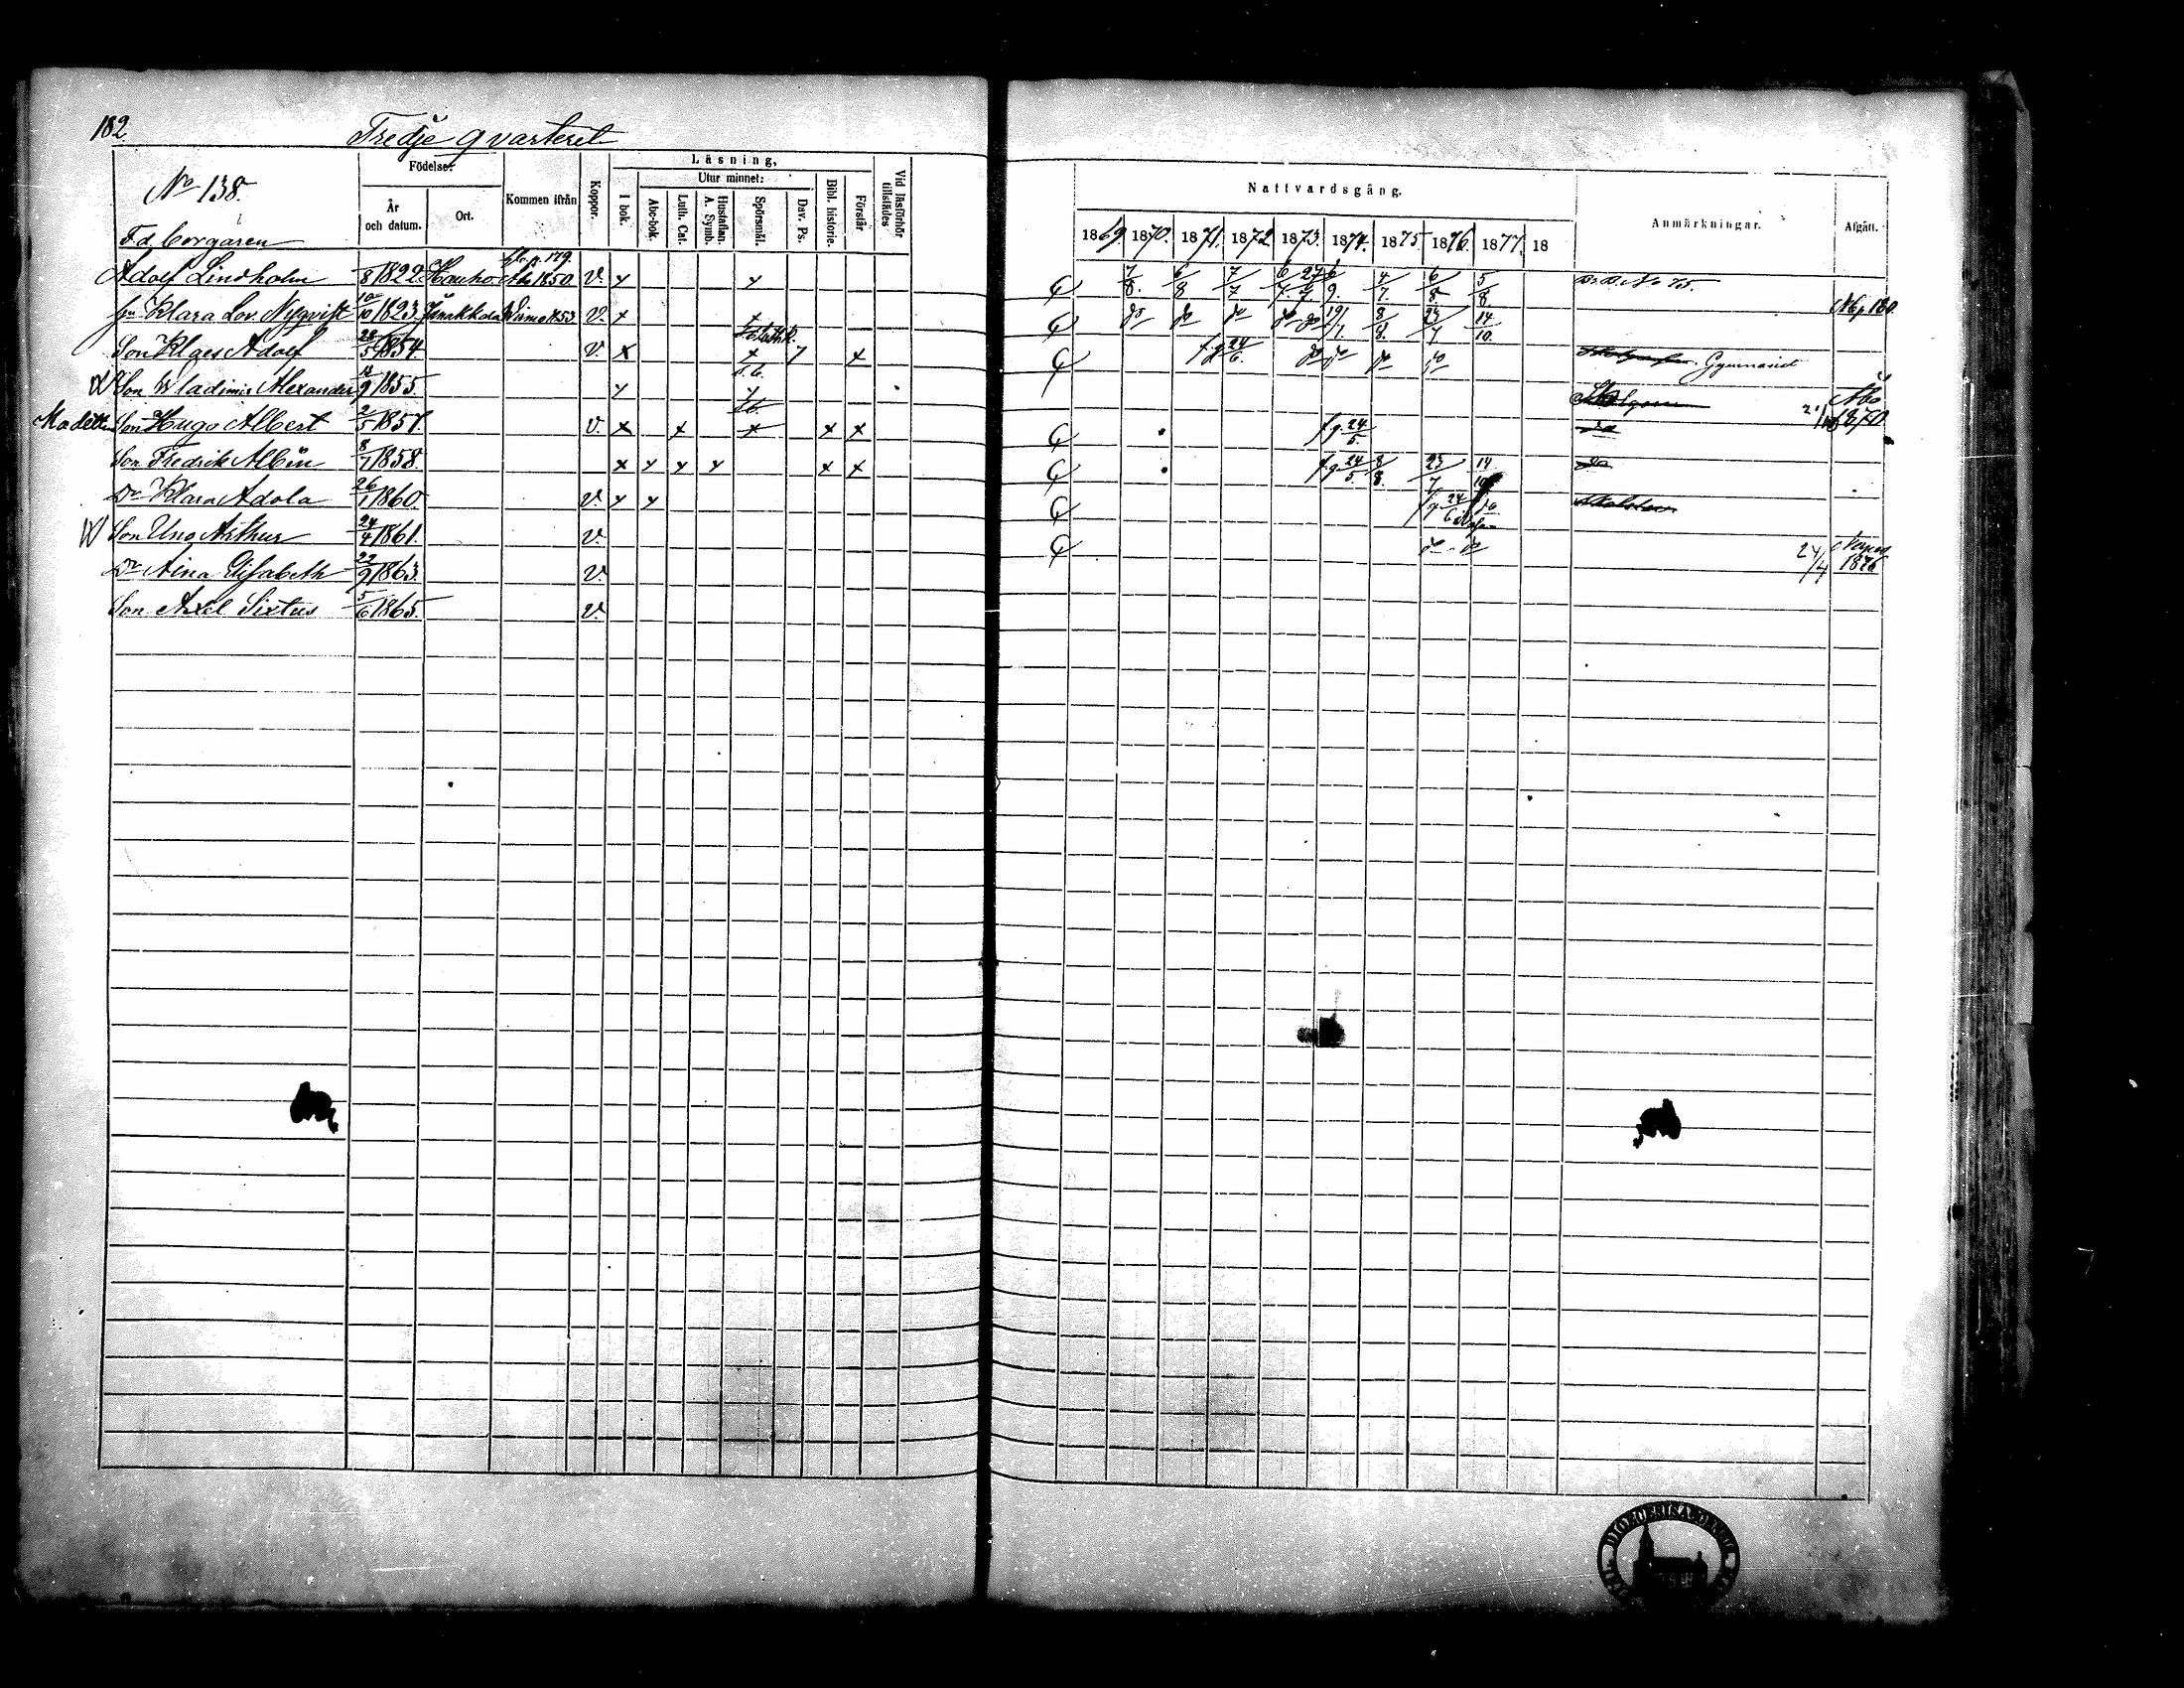 182
Tredje qvarteret
No 138.
Födelse:
År och datum.
Ort.
Kommen ifrån
Koppor.
Läsning,
I bok.
Utur minnet:
Abc-bok.
Luth. Cat.
Hustaflan. A. Symb.
Spörsmål.
Dav. Ps.
Bibl. historie.
Förstår
Vid läsförhör tillstädes
Nattvardsgång.
1869. 1870. 1871. 1872. 1873. 1874. 1875. 1876. 1877. 18
Anmärkningar.
Afgått.
F.d. borgaren
p. 179.
Adolf Lindholm 8 1822 Hauho Åbo 1850. v. x x 7/8. 6/8 7/7 6/7. 6/9. 4/7. 6/8. 5/8. No 75.
Klara Lov. Nyqvist 10/10 1823 Janakkala Wirmo 1853. v. x x do do do do do 19/1 8/8. 23/7 14/10. p 180
Son Klaes Adolf 28/5 1854 v. x x 7 x f.g. 24/6. do do do do Gymnasist
Son Wladimir Alexander 9 1855. x x Åbo 1870
Son Hugo Albert 2/5 1857. v. x x x x x f.g. 24/5.
Son Fredrik Albin 8/7 1858. x x x x x x f.g. 24/5. 8/8. 23/7 14/10
Dr Klara Adola 26/1 1860. v. x x f.g. 24/6 do
Son Uno Arthur 24/4 1861. v. do do 24/4 1876
Dr Aina Elisabeth 22/9 1863. v.
Son Axel Sixtus 5/6 1865. v.